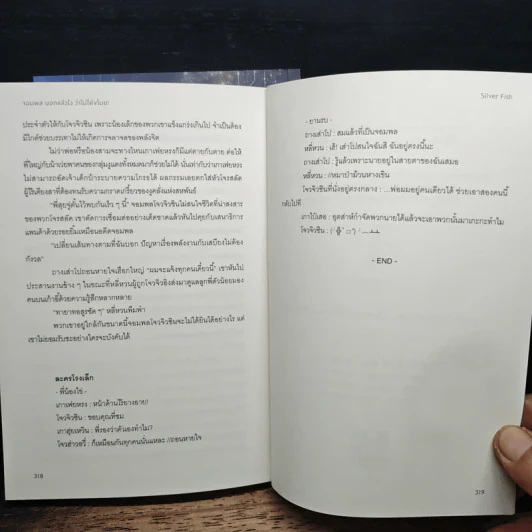 จอมพล บอกแล้วไง ว่าไม่ใช่ไบโพ!
ประจำตัวให้กับโจวจิวซิน เพราะน้องเล็กของพวกเขาแข็งแกร่งเกินไป จำเป็นต้อง
มีไกด์ช่วยบรรเทาไม่ให้เกิดการจลาจลของพลังจิต
ไม่ว่าพ่อหรือน้องสามจะทางไหนเกาเฟยหรงก็มีแต่ตายกับตาย ต่อให้
พี่ใหญ่กับน้าเว่ยพาคนของกลุ่มงูแดงทั้งหมดมาก็ช่วยไม่ได้ นั่นเท่ากับว่าเกาเฟยหรง
ไม่สามารถอัดเจ้าเด็กน้าระบายความโกรธได้ ผลกรรมเลยตกใส่หัวโจรสลัด
ผู้ไร้เดียงสาที่ต้องทนรับความกราดเกรี้ยวของคู่คลั่งแห่งสหพันธ์
"พี่สุยจู่ตั้นไว้พบกันเร็ว ๆ นี้" จอมพลโจวจิวซินไม่สนใจชีวิตที่น่าสงสาร
ของพวกโจรสลัด เขาตัดการเชื่อมต่ออย่างเด็ดขาดแล้วหันไปคุยกับเสนาธิการ
แพนด้าด้วยรอยยิ้มเหมือนอดีตจอมพล
"เปลี่ยนเส้นทางตามที่ฉันบอก ปัญหาเรื่องพลังงานกับเสบียงไม่ต้อง
กังวล"
ถางเส่าไปถอนหายใจเฮือกใหญ่ "ผมจะแจ้งทุกคนเดี๋ยวนี้" เขาหันไป
ประสานงานข้าง ๆ ในขณะที่หลี่หวนผู้ถูกโจวจิวอิงส่งมาดูแลลูกพี่ตัวน้อยมอง
คนบนเก้าอี้ด้วยความรู้สึกหลากหลาย
"ทายาทอสูรชัด ๆ" หลี่หวนพึมพำ
พวกเขาอยู่ใกล้กันขนาดนี้จอมพลโจวจิวซินจะไม่ได้ยินได้อย่างไร แต่
เขาไม่ยอมรับซะอย่างใครจะบังคับได้
ละครโรงเล็ก
- พี่น้องไข่ -
เกาเฟยหรง : หน้าด้านไร้ยางอาย!
โจวจิวซิน : ขอบคุณที่ชม
เกาสุ่ยเหวิน : พี่รองว่าตัวเองทำไม?
โจวฮ่าวอวี้ : ก็เหมือนกันทุกคนนั่นแหละ //ถอนหายใจ
318
Silver Fish
- ยานรบ -
ถางเส่าไป : สมแล้วที่เป็นจอมพล
หลี่หวน : เส้! เส่าไปสนใจฉันสิ ฉันอยู่ตรงนี้นะ
ถางเส่าไป : รู้แล้วเพราะนายอยู่ในสายตาของฉันเสมอ
หลี่หวน : //หมาป่าม้วนหางเขิน
โจวจิวซินที่นั่งอยู่ตรงกลาง : ...พ่อผมอยู่คนเดียวได้ ช่วยเอาสองคนนี้
กลับไปที
เกาไป๋เสอ : อุตส่าห์กำจัดพวกนายได้แล้วจะเอาพวกนั้นมาเกะกะทำไม
โจวจิวซิน :
- END -
319